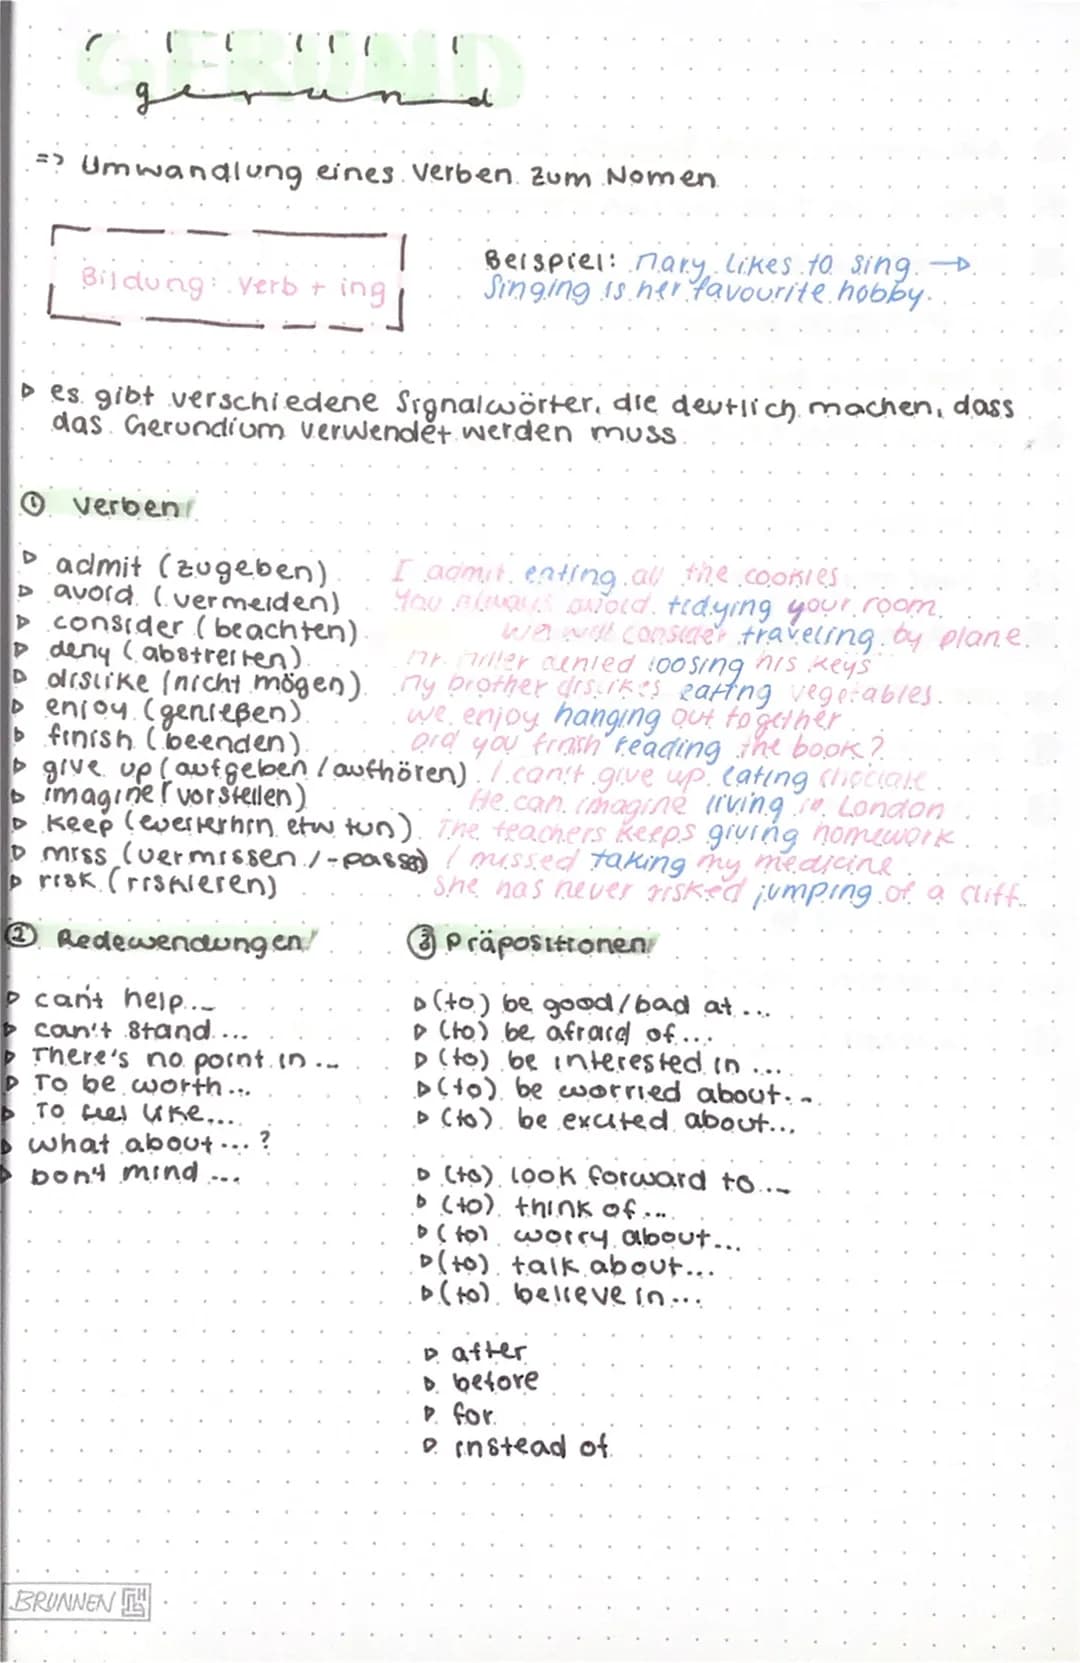 GERUND
gerund
=> Umwandlung eines Verben zum Nomen
Bildung: Verb + ing
Beispiel: Mary likes to sing. →
Singing is her favourite hobby.
▷ es gibt verschiedene Signalwörter, die deutlich machen, dass
das Gerundium verwendet werden muss
① Verben
▷ admit (zugeben) I admit eating all the cookies.
▷ avoid (vermeiden) You always avoid tidying your room.
▷ consider (beachten) We will consider traveling by plane.
▷ deny (abstreiten) Mr. Miller denied loosing his keys
▷ dislike (nicht mögen) My brother dislikes eating vegetables.
▷ enjoy (genießen) We enjoy hanging out together.
▷ finish (beenden) Did you finish reading the book?
▷ give up (aufgeben / aufhören) I can't give up eating
▷ imagine (vorstellen) He can imagine living in London
▷ keep (etw tun) The teachers keeps giving homework.
▷ miss (vermissen / -passen) I missed taking my medicine.
▷ risk (riskieren) She has never risked jumping of a cliff.
② Redewendungen
▷ can't help...
▷ can't stand...
▷ There's no point in...
▷ To be worth...
▷ To feel like...
▷ what about...?
▷ Don't mind...
③ Präpositionen
▷ (to) be good/bad at...
▷ (to) be afraid of...
▷ (to) be interested in...
▷ (to) be worried about...
▷ (to) be excited about...
▷ (to) look forward to...
▷ (to) think of...
▷ (to) worry about...
▷ (to) talk about...
▷ (to) believe in...
▷ after
▷ before
▷ for
▷ instead of
BRUNNEN